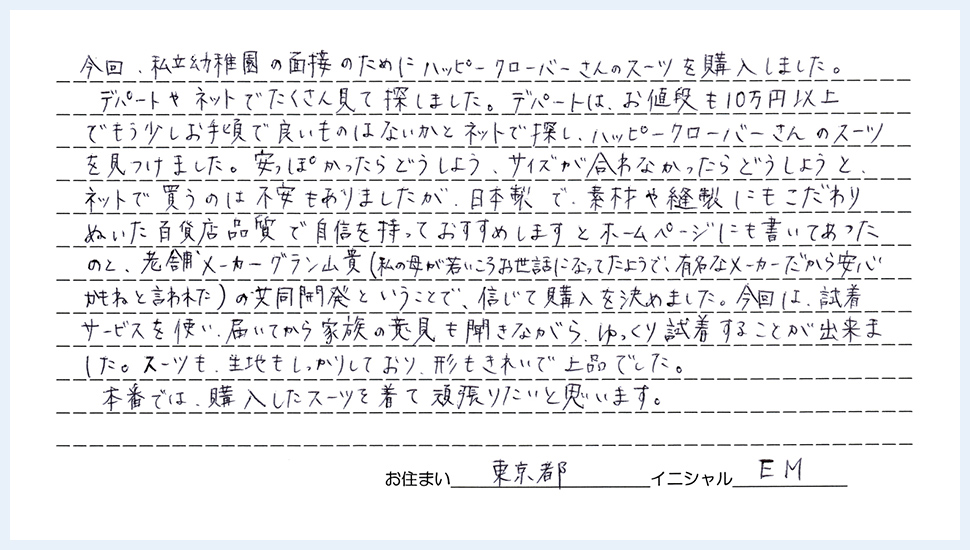 今回、私立幼稚園の面接のためにハッピークローバーさんのスーツを購入しました。
デパートやネットでたくさん見て探しました。デパートは、お値段も10万円以上
でもう少しお手頃で良いものはないかとネットで探し、ハッピークローバーさんのスーツ
を見つけました。安っぽかったらどうしよう、サイズが合わなかったらどうしようと、
ネットで買うのは不安もありましたが、日本製で、素材や縫製にもこだわり
ぬいた百貨店品質で自信を持っておすすめしますとホームページにも書いてあった
のと、老舗メーカーグラン山貴(私の母が若いころお世話になってたようで、有名なメーカーだから安心
かもねと言われた)の共同開発ということで、信じて購入を決めました。今回は、試着
サービスを使い、届いてから家族の意見も聞きながら、ゆっくり試着することが出来ま
した。スーツも、生地もしっかりしており、形もきれいで上品でした。
本番では、購入したスーツを着て頑張りたいと思います。
お住まい 東京都 イニシャル E M